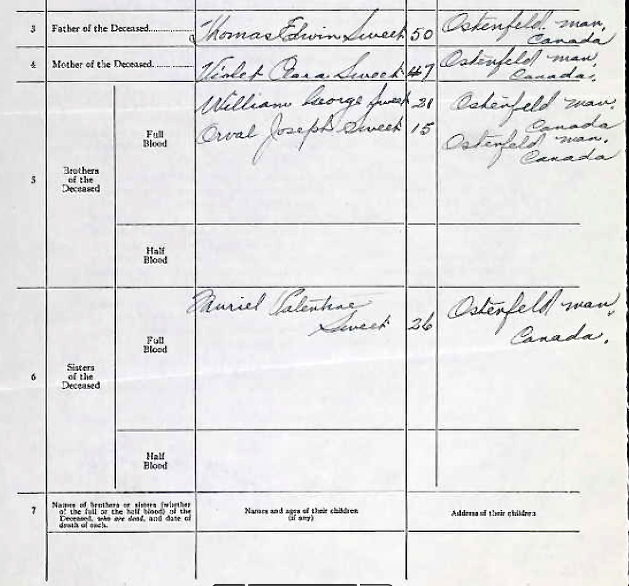 3 Father of the Deceased........... Thomas Edwin Sweet 50 Ostenfeld man,
Canada
4 Mother of the Deceased........... Violet Clara Sweet 47 Ostenfeld man,
Canada.
William George Sweet 21 Ostenfeld man,
Canada
Full
Blood
Orval Joseph Sweet 15 Ostenfeld man.
Canada
5 Brothers
of the
Deceased
Half
Blood
Muriel Valentine
Sweet 26 Ostenfeld man,
Canada.
Full
Blood
6 Sisters
of the
Deceased
Half
Blood
7 Names of brothers or sisters (whether
of the full or the half blood) of the
Deceased, who are dead, and date of
death of each.
Names and ages of their children
(if any)
Address of their children